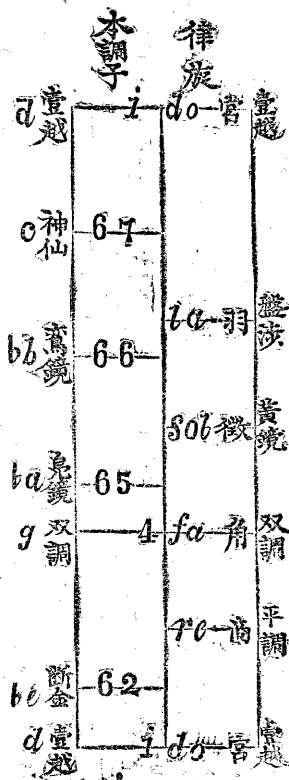 本調子 律旋
d 壹越 i do 宮 壹越
c 神仙 6 7
la 羽 盤渉
bb 鸞鏡 6 6
sol 徴 黃鏡
ba 鳧鏡 6 5
g 双調 4 fa 角 双調
re 商 平調
be 断金 6 2
d 壹越 1 do 宮 壹越